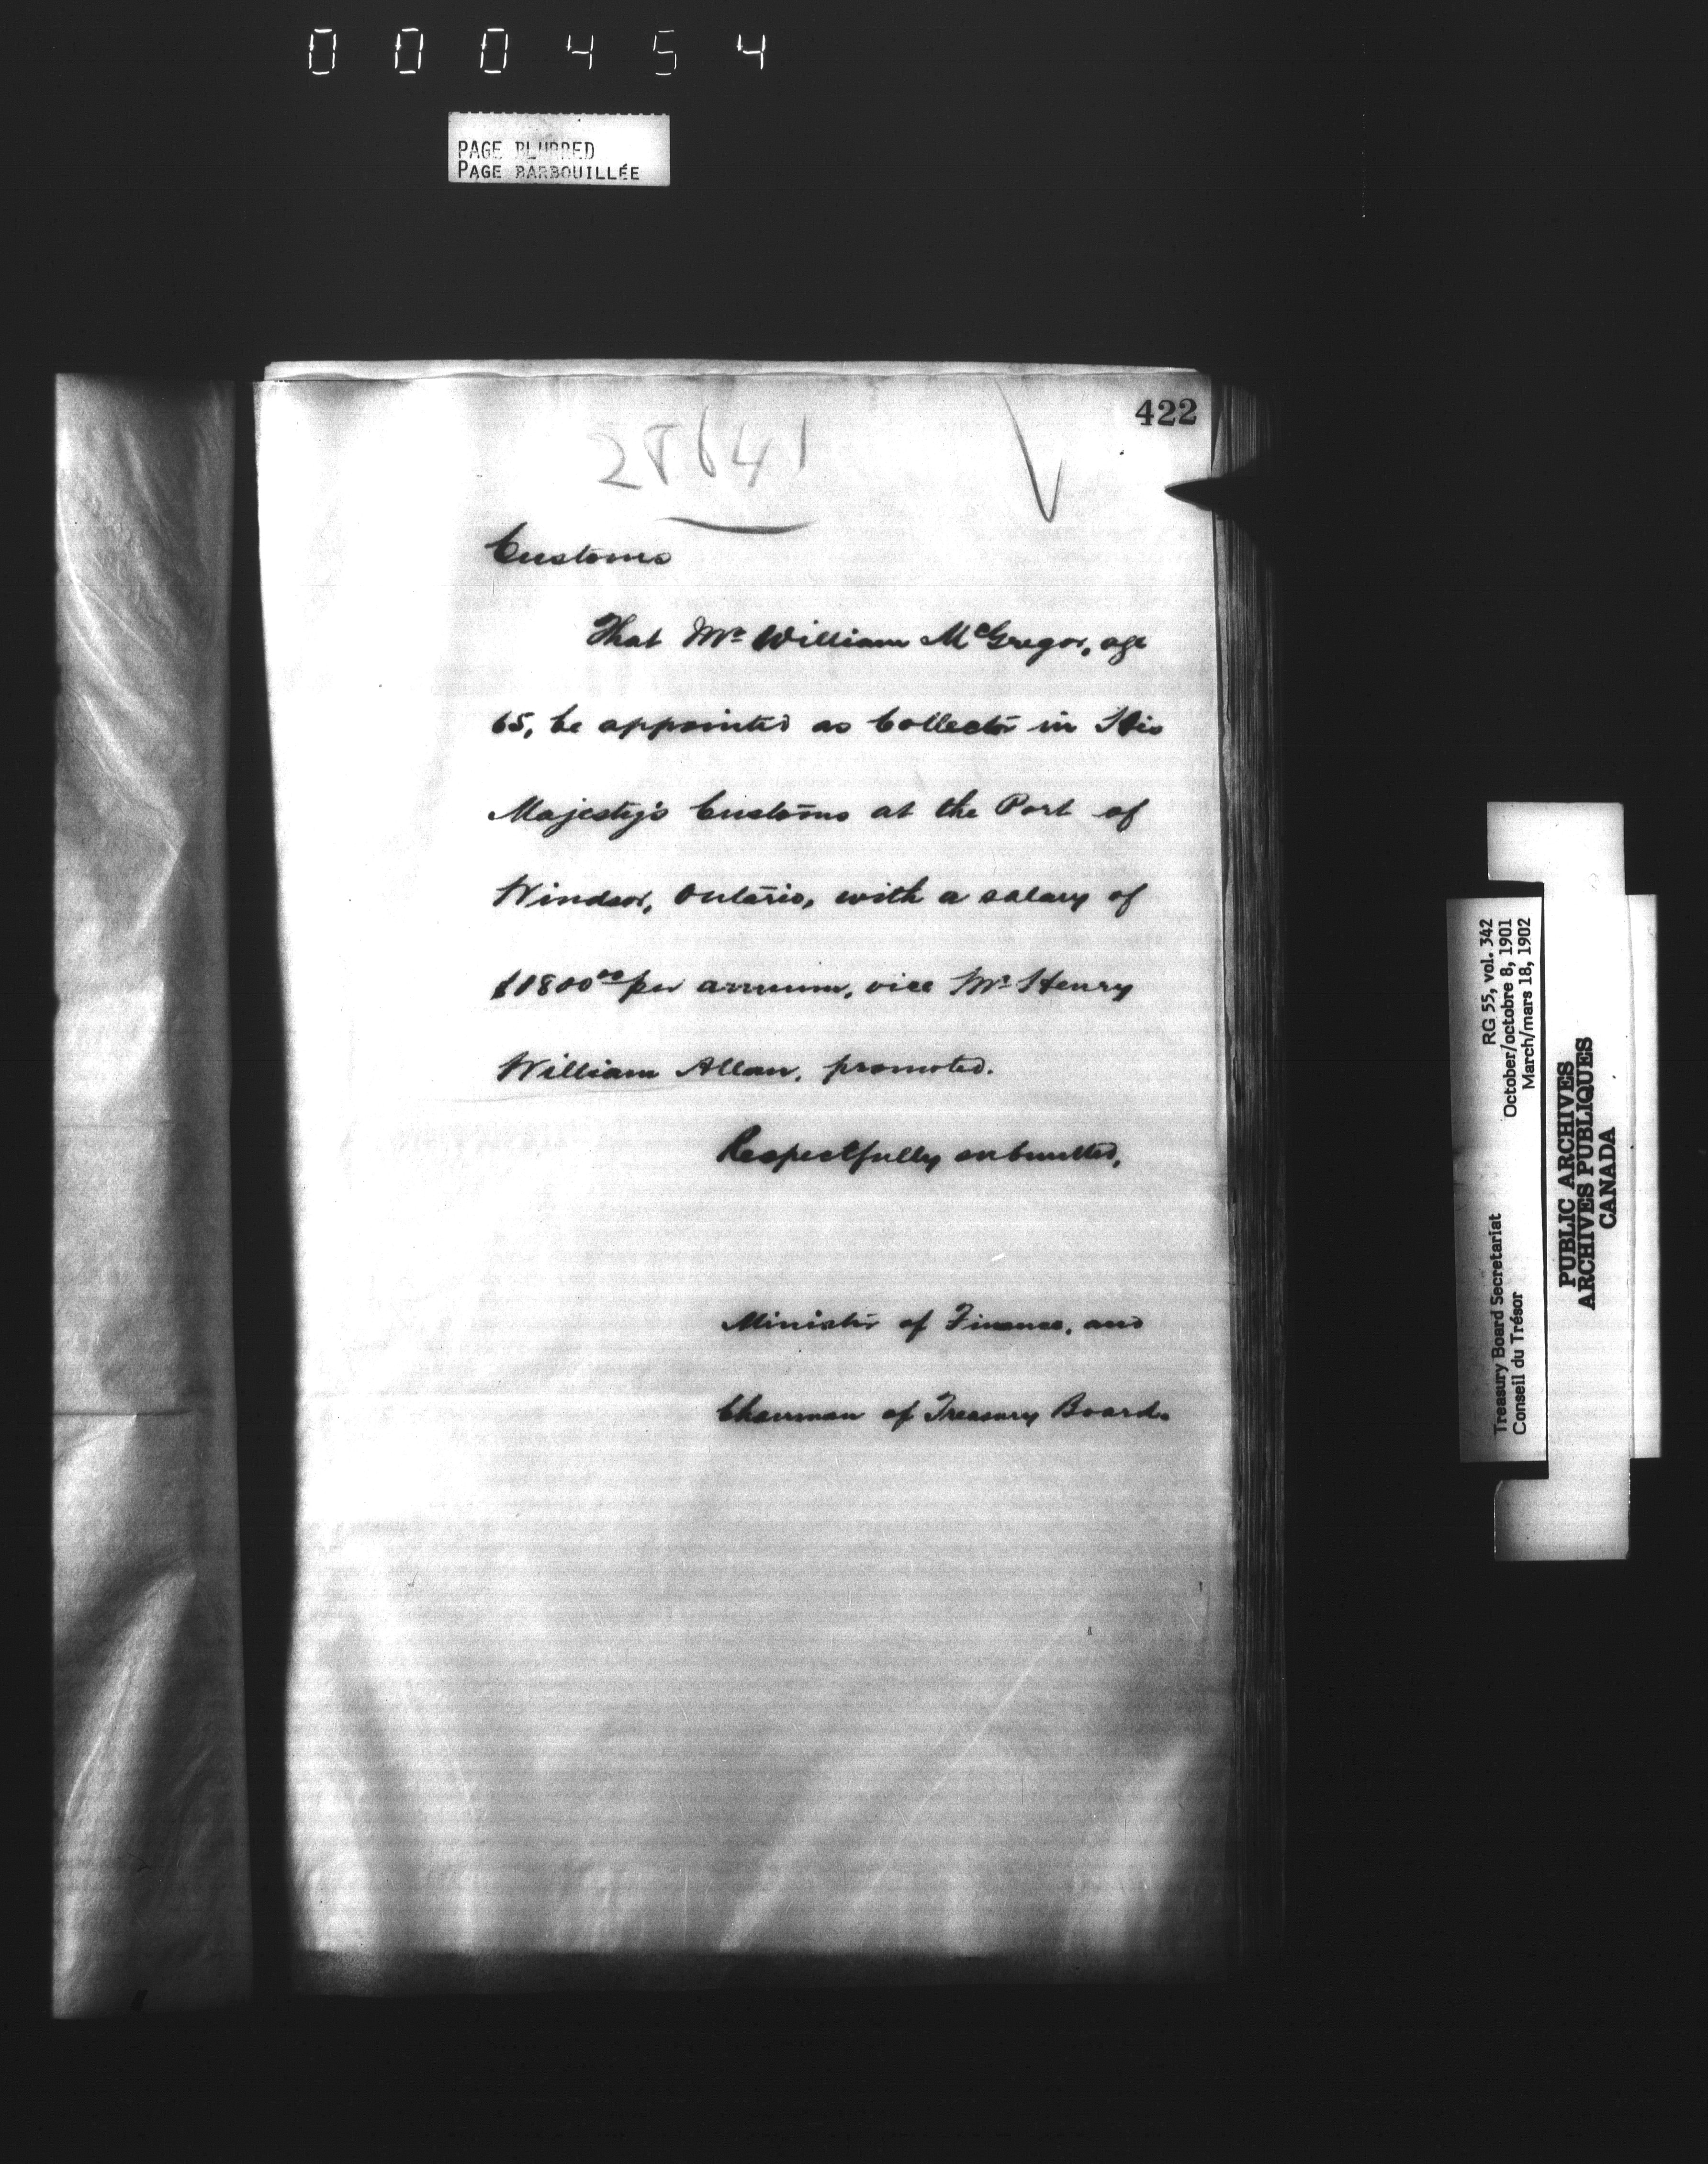 000454
PAGE BLURRED
PAGE BARBOUILLÉE
422
28641
Customs
That Mr William McGregor, age
65, be appointed as Collector in His
Majesty's Customs at the Port of
Windsor, Ontario, with a salary of
$1800.00 per annum, vice Mr Henry
William Allan, promoted.
Respectfully submitted,
Minister of Finance, and
Chairman of Treasury Board.
Treasury Board Secretariat RG 55, vol. 342
Conseil du Trésor October/octobre 8, 1901
March/mars 18, 1902
PUBLIC ARCHIVES
ARCHIVES PUBLIQUES
CANADA